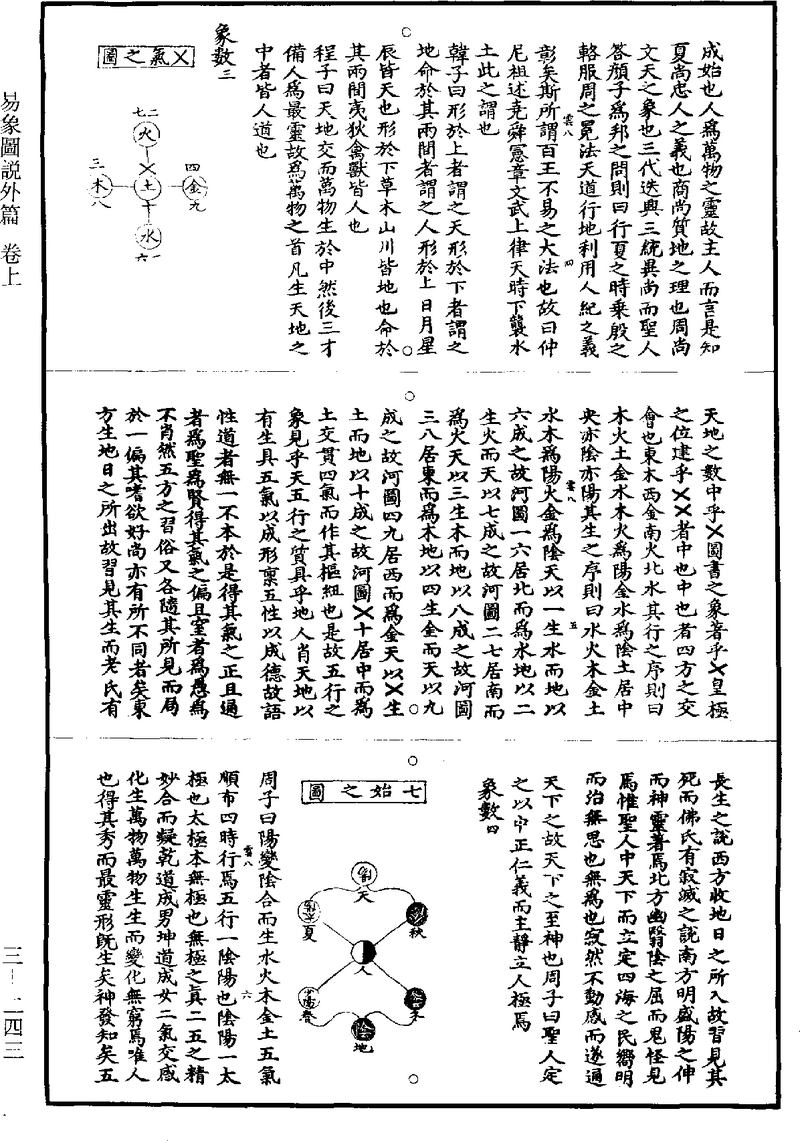 易象圖說外篇 卷上
三-二四三
成始也人爲萬物之靈故主人而言是知
夏尚忠人之義也商尚質地之理也周尚
文天之象也三代迭興三統異尚而聖人
答顏子爲邦之問則曰行夏之時乘殷之
輅服周之冕法天道行地利用人紀之義
雲八
四
彰矣斯所謂百王不易之大法也故曰仲
尼祖述堯舜憲章文武上律天時下襲水
土此之謂也
韓子曰形於上者謂之天形於下者謂之
地命於其兩間者謂之人形於上日月星
辰皆天也形於下草木山川皆地也命於
其兩間夷狄禽獸皆人也
程子曰天地交而萬物生於中然後三才
備人爲最靈故爲萬物之首凡生天地之
中者皆人道也
象數三
㐅氣之圖
七二
火
三
木
八
土
四
金
九
水
六一
天地之數中乎㐅圖書之象著乎㐅皇極
之位建乎㐅㐅者中也中也者四方之交
會也東木西金南火北水其行之序則曰
木火土金水木火爲陽金水爲陰土居中
央亦陰亦陽其生之序則曰水火木金土
雲八
五
水木爲陽火金爲陰天以一生水而地以
六成之故河圖一六居北而爲水地以二
生火而天以七成之故河圖二七居南而
爲火天以三生木而地以八成之故河圖
三八居東而爲木地以四生金而天以九
成之故河圖四九居西而爲金天以㐅生
土而地以十成之故河圖㐅十居中而爲
土交貫四氣而作其樞紐也是故五行之
象見乎天五行之質具乎地人肖天地以
有生具五氣以成形禀五性以成德故語
性道者無一不本於是得其氣之正且通
者爲聖爲賢得其氣之偏且窒者爲愚爲
不肖然五方之習俗又各隨其所見而局
於一偏其嗜欲好尚亦有所不同者矣東
方生地日之所出故習見其生而老氏有
長生之說西方收地日之所入故習見其
死而佛氏有寂滅之說南方明盛陽之伸
而神靈著焉北方幽翳陰之屈而鬼怪見
焉惟聖人中天下而立定四海之民嚮明
而治無思也無爲也寂然不動感而遂通
天下之故天下之至神也周子曰聖人定
之以中正仁義而主靜立人極焉
象數四
七始之圖
天
夏
秋
人
春
冬
地
周子曰陽變陰合而生水火木金土五氣
順布四時行焉五行一陰陽也陰陽一太
雲八
六
極也太極本無極也無極之真二五之精
妙合而凝乾道成男坤道成女二氣交感
化生萬物萬物生生而變化無窮焉准人
也得其秀而最靈形旣生矣神發知矣五